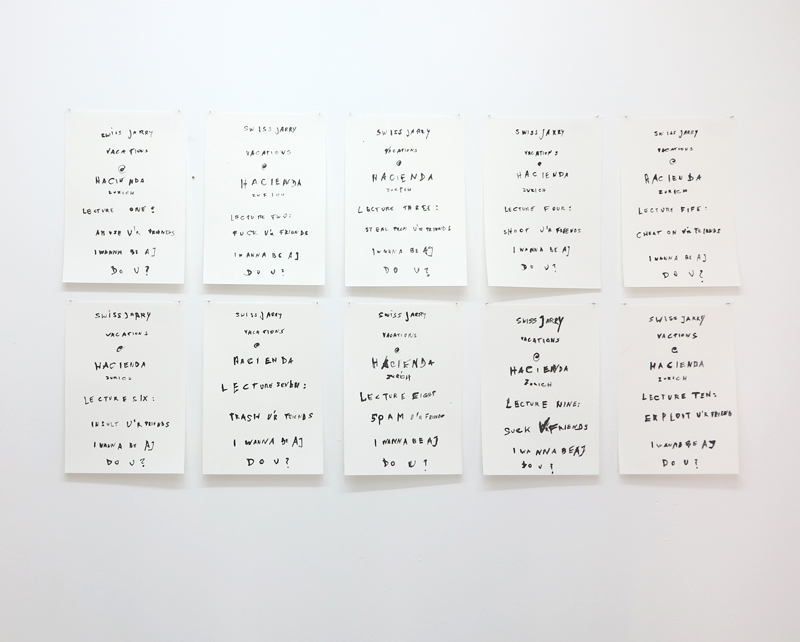 SWISS JARRY
VACATIONS
@
HACIENDA
ZURICH
LECTURE ONE:
ABUSE U'R FRIENDS
I WANNA BE AJ
DO U?
SWISS JARRY
VACATIONS
@
HACIENDA
ZURICH
LECTURE TWO:
FUCK U'R FRIENDS
I WANNA BE AJ
DO U?
SWISS JARRY
VACATIONS
@
HACIENDA
ZURICH
LECTURE THREE:
STEAL FROM U'R FRIENDS
I WANNA BE AJ
DO U?
SWISS JARRY
VACATIONS
@
HACIENDA
ZURICH
LECTURE FOUR:
SHOOT U'R FRIENDS
I WANNA BE AJ
DO U?
SWISS JARRY
VACATIONS
@
HACIENDA
ZURICH
LECTURE FIFE:
CHEAT ON U'R FRIENDS
I WANNA BE AJ
DO U?
SWISS JARRY
VACATIONS
@
HACIENDA
ZURICH
LECTURE SIX:
INSULT U'R FRIENDS
I WANNA BE AJ
DO U?
SWISS JARRY
VACATIONS
@
HACIENDA
LECTURE SEVEN:
TRASH U'R FRIENDS
I WANNA BE AJ
DO U?
SWISS JARRY
VACATIONS
@
HACIENDA
ZURICH
LECTURE EIGHT
SPAM U'R FRIENDS
I WANNA BE AJ
DO U?
SWISS JARRY
VACATIONS
@
HACIENDA
ZURICH
LECTURE NINE:
SUCK U'R FRIENDS
I WANNA BE AJ
DO U?
SWISS JARRY
VACTIONS
@
HACIENDA
ZURICH
LECTURE TEN:
EXPLOIT U'R FRIENDS
I WANAB BE AJ
DO U?